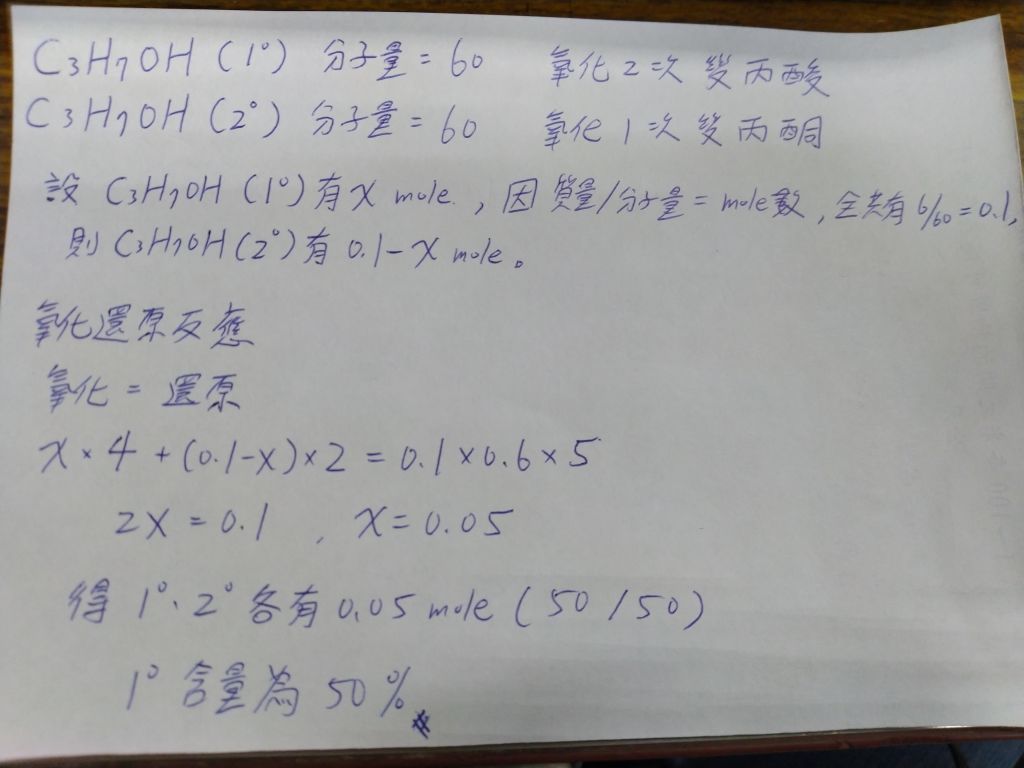 C₃H₇OH (1°) 分子量 = 60 氧化2次變丙酸
C₃H₇OH (2°) 分子量 = 60 氧化1次變丙酮
設 C₃H₇OH (1°) 有 x mole. , 因 質量/分子量 = mole數 , 全共有 6/60 = 0.1,
則 C₃H₇OH (2°) 有 0.1-x mole。
氧化還原反應
氧化 = 還原
x × 4 + (0.1-x) × 2 = 0.1 × 0.6 × 5
2x = 0.1 , x = 0.05
得 1°、2° 各有 0.05 mole (50/50)
1° 含量為 50% #